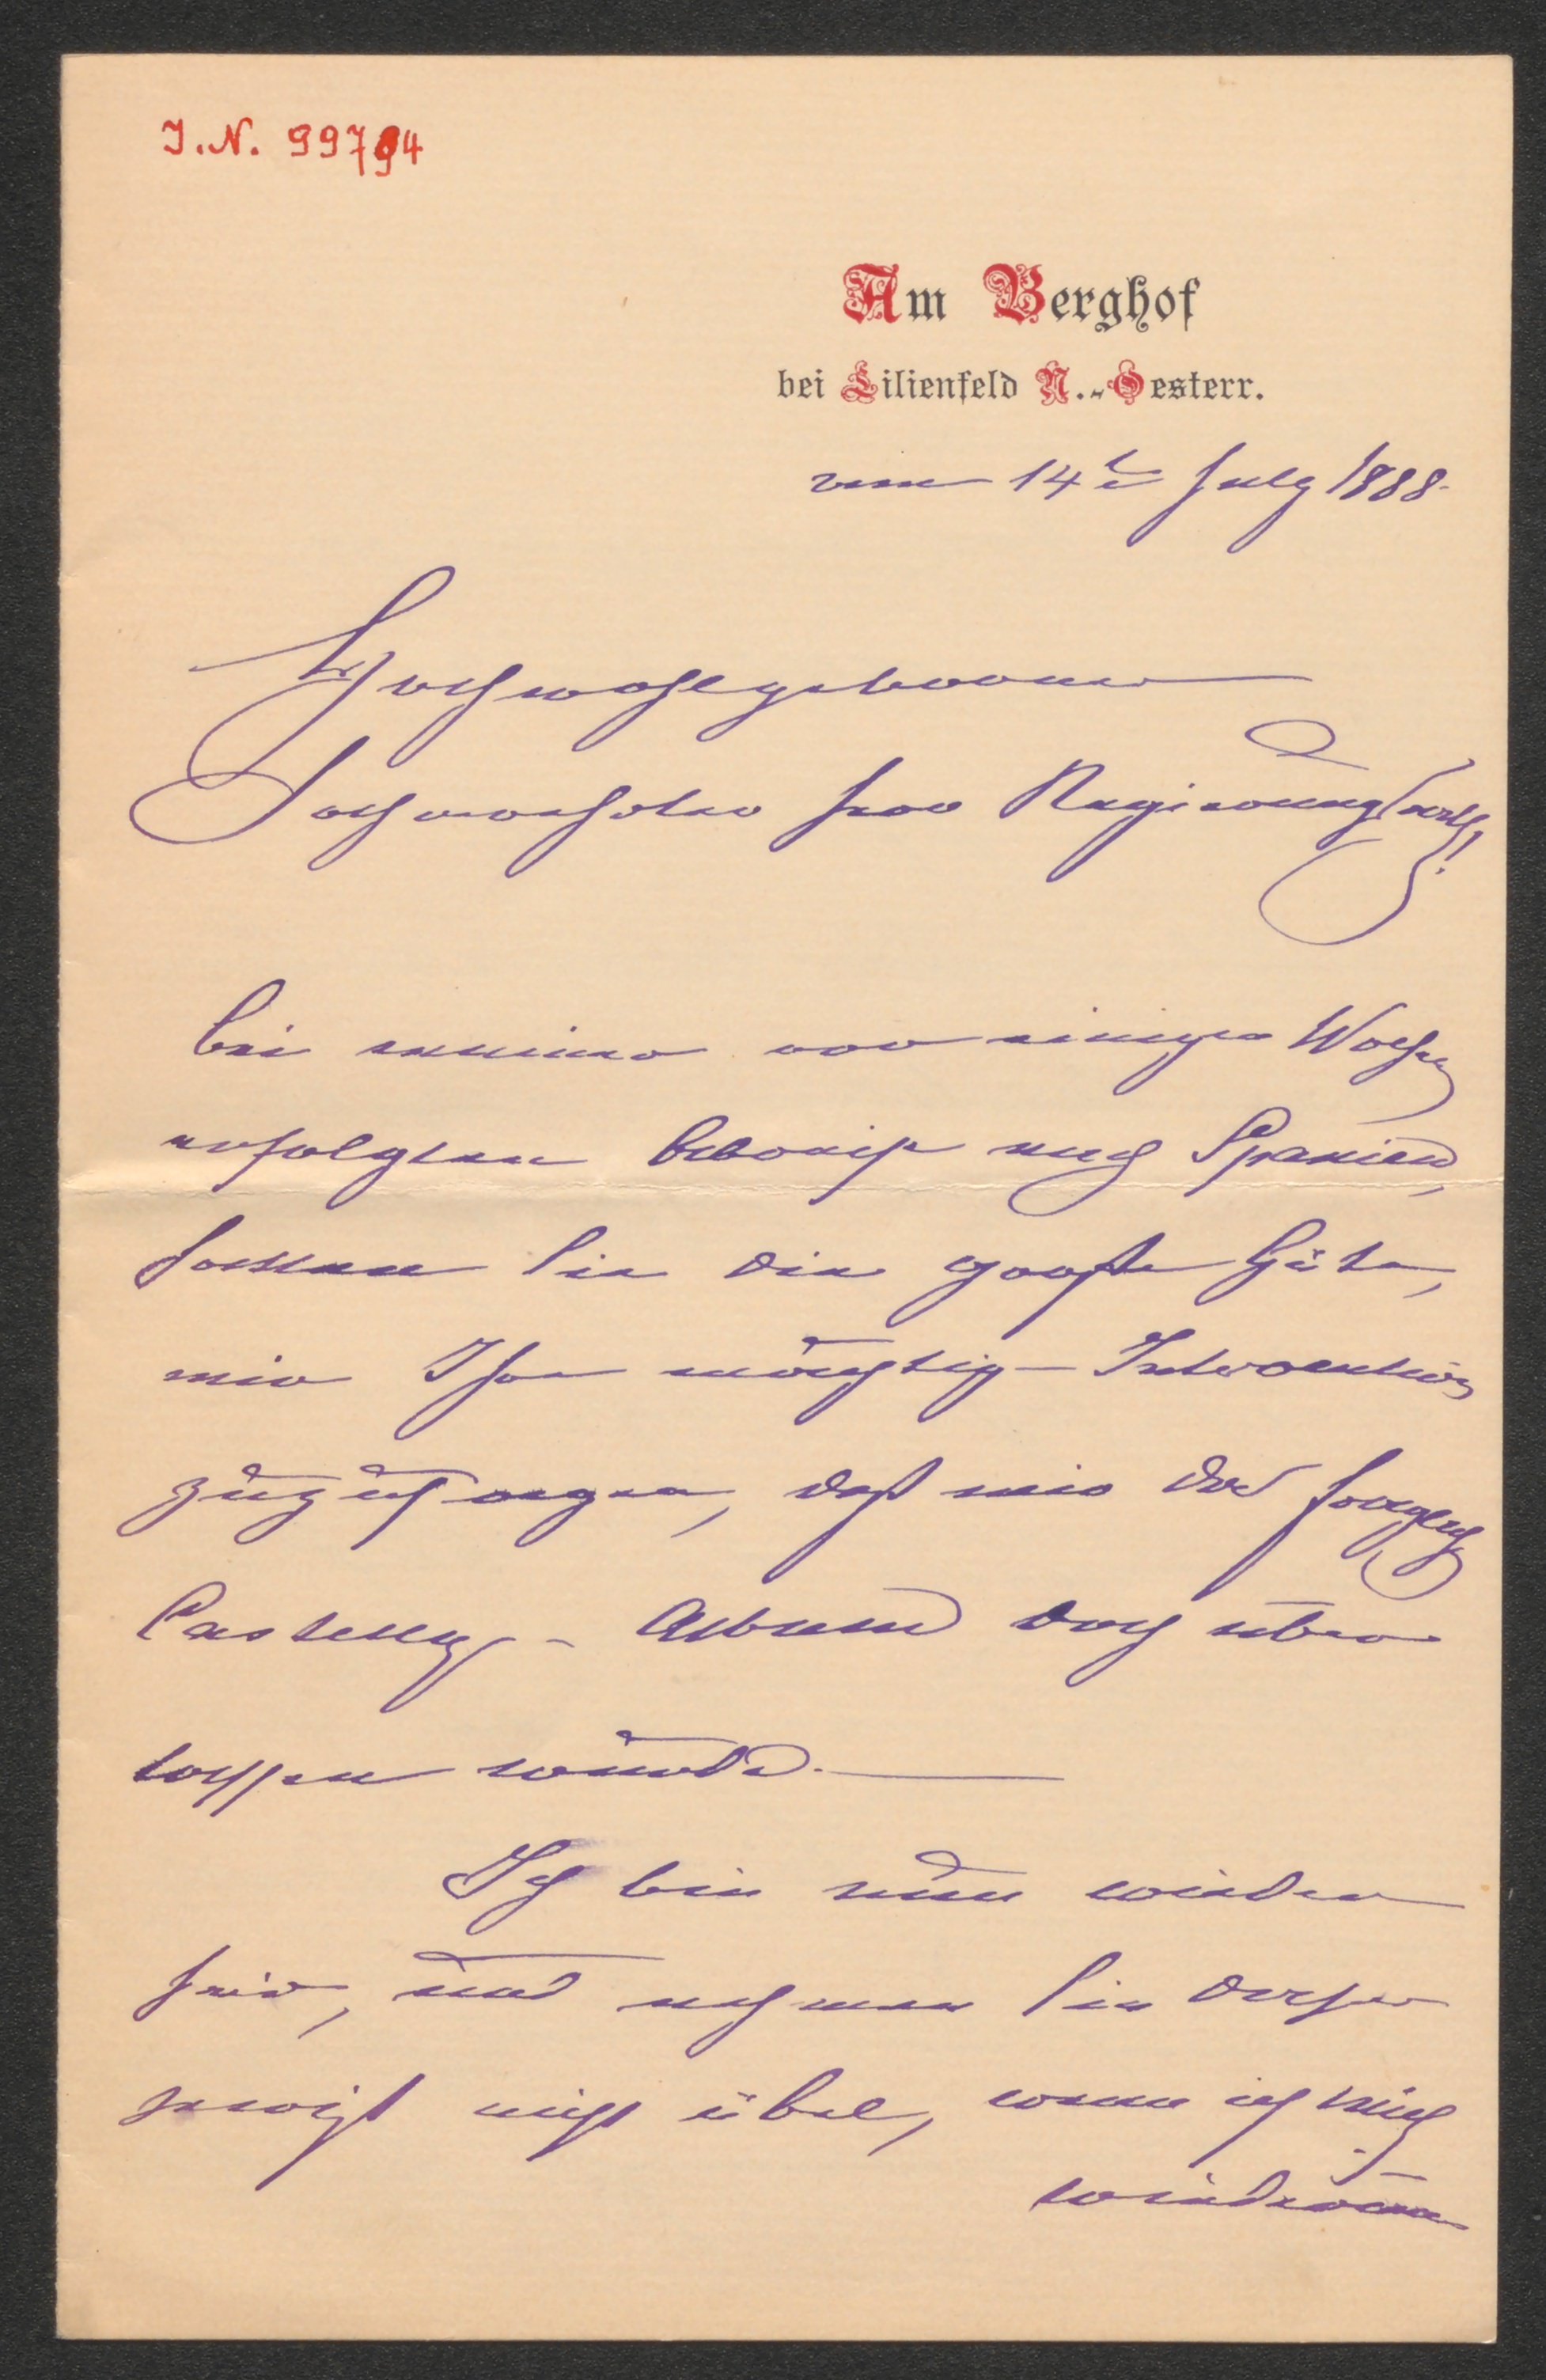 I.N. 99794
Am Berghof
bei Lilienfeld N.-Oesterr.
vom 14t July 1888.
Hochwohlgeborner
Hochverehrter Herr Regierungsrath!
Bei meiner vor einigen Wochen
erfolgten Abreise nach Spanien,
hatten Sie die große Güte,
mir Ihre mächtige Intervention
zuzusagen, daß mir das
Castelly-Album doch über
lassen würde.
Ich bin nun wieder
hier, und nehmen Sie daher
gewiß nicht übel, wenn ich mich
wiederum